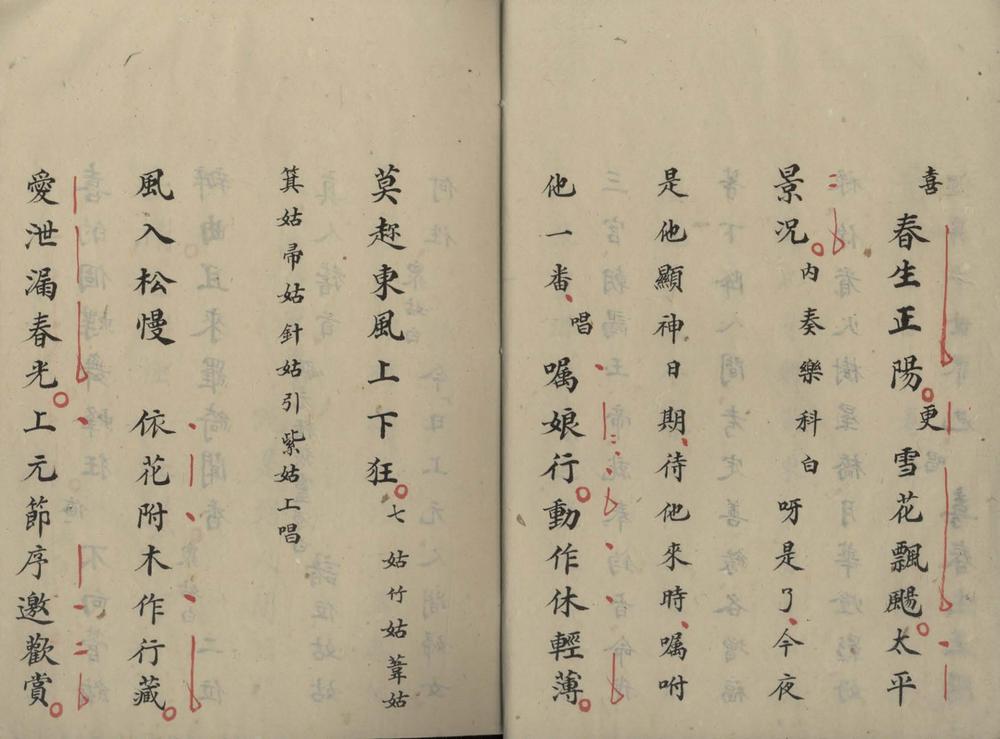 喜春生正陽更雪花飄颺太平
景況內奏樂科白呀是了今夜
是他顯神日期待他來時囑咐
他一番唱囑娘行動作休輕薄
莫趂東風上下狂七姑竹姑葦姑
箕姑帚姑針姑引紫姑上唱
風入松慢 依花附木作行藏
愛泄漏春光上元節序邀歡賞